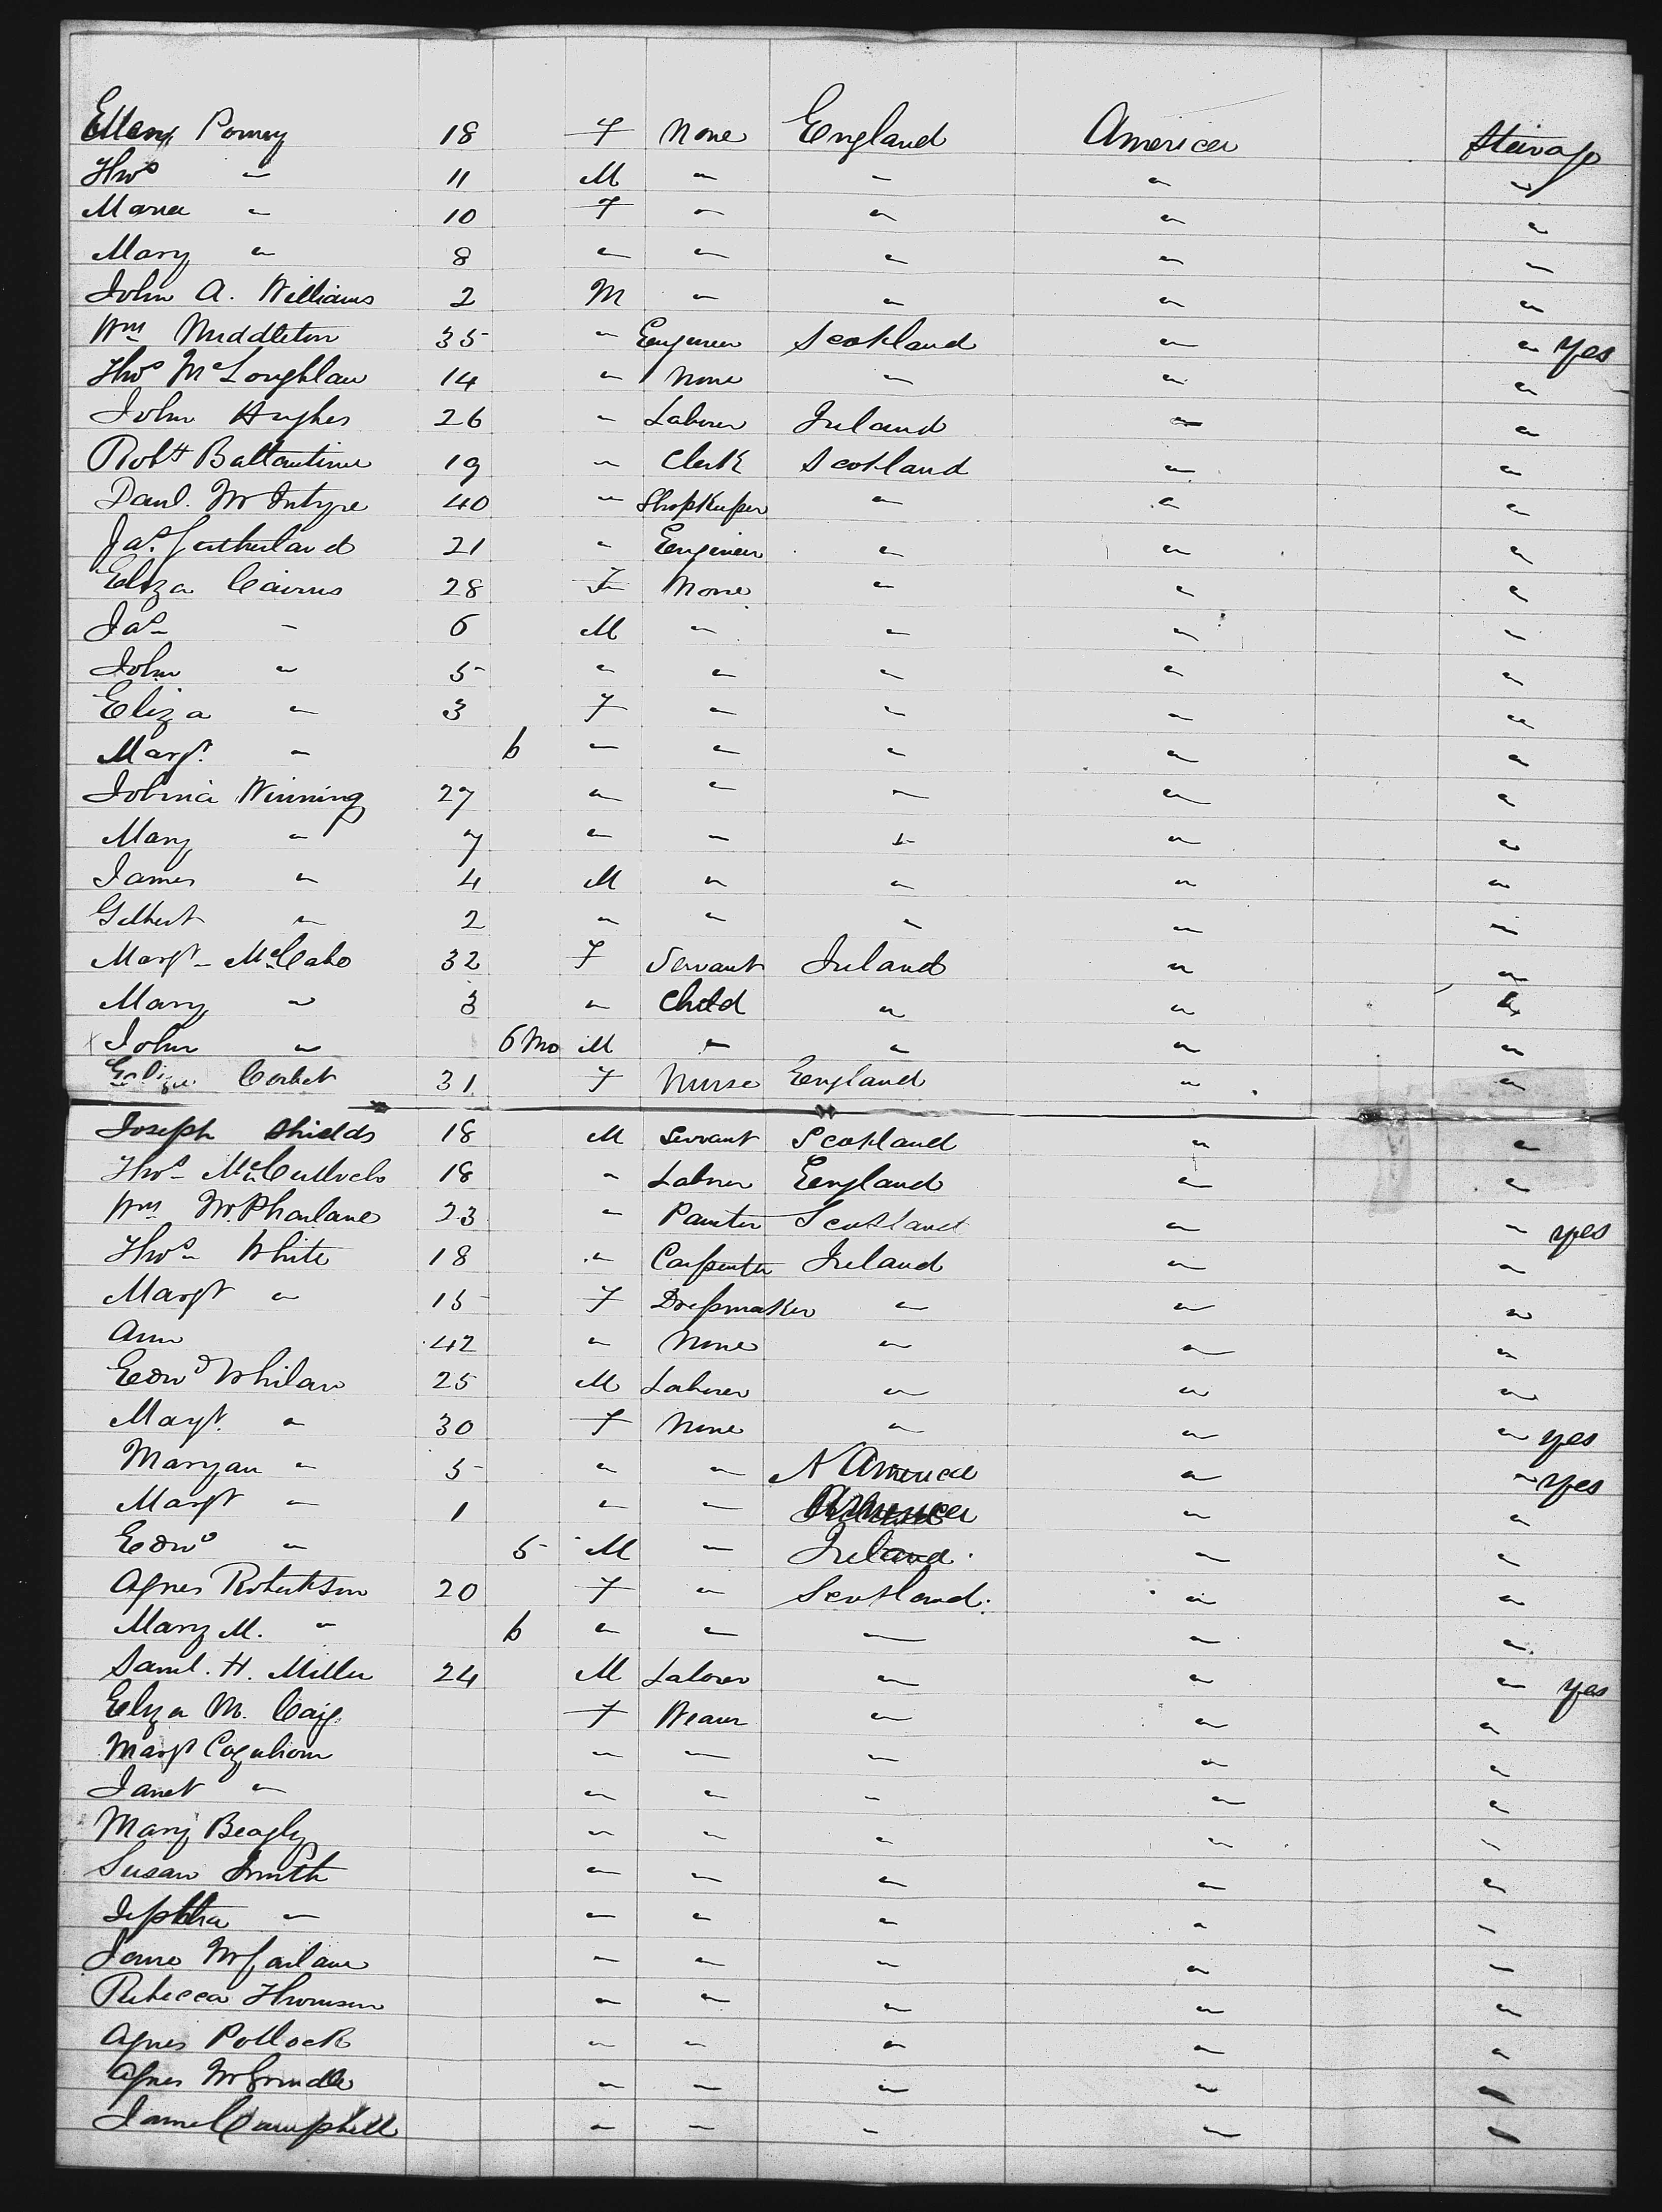 Ellen Pomroy 18 F None England America Steerage
Thos " 11 M " " " "
Maria " 10 F " " " "
Mary " 8 " " " " "
John A. Williams 2 M " " " "
Wm Middleton 35 " Engineer Scotland " " yes
Thos McLoughlan 14 " None " " "
John Hughes 26 " Laborer Ireland " "
Robt Ballantine 19 " Clerk Scotland " "
Danl. McIntyre 40 " Shopkeeper " " "
Jas. Sutherland 21 " Engineer " " "
Eliza Cairns 28 F None " " "
Jas " 6 M " " " "
John " 5 " " " " "
Eliza " 3 F " " " "
Margt. " 6 " " " " "
Robina Winning 27 " " " " "
Mary " 7 " " " " "
James " 4 M " " " "
Gilbert " 2 " " " " "
Margt McCabe 32 F Servant Ireland " "
Mary " 3 " Child " " "
John " 6 Mo M " " " "
Eliza Corbet 31 F Nurse England " "
Joseph Shields 18 M Servant Scotland " "
Thos McCulloch 18 " Laborer England " "
Wm McPharlane 23 " Painter Scotland " " yes
Thos White 18 " Carpenter Ireland " "
Margt " 15 F Dressmaker " " "
Ann 42 " None " " "
Edwd Whilan 25 M Laborer " " "
Margt. " 30 F None " " " yes
Maryan " 5 " " N America " " yes
Margt " 1 " " America " "
Edwd " 5 M " Ireland " "
Agnes Robertson 20 F " Scotland " "
Mary M. " 6 " " " " "
Saml. H. Miller 24 M Laborer " " " yes
Eliza M. Caig F Weaver " " "
Margt " " " " "
Janet " " " " " "
Mary Beagly " " " " "
Susan Smith " " " " "
Jeptha " " " " " "
Jane McFarlane " " " " "
Rebecca Thomson " " " " "
Agnes Pollock " " " " "
Agnes " " " " "
Jane Campbell " " " " "